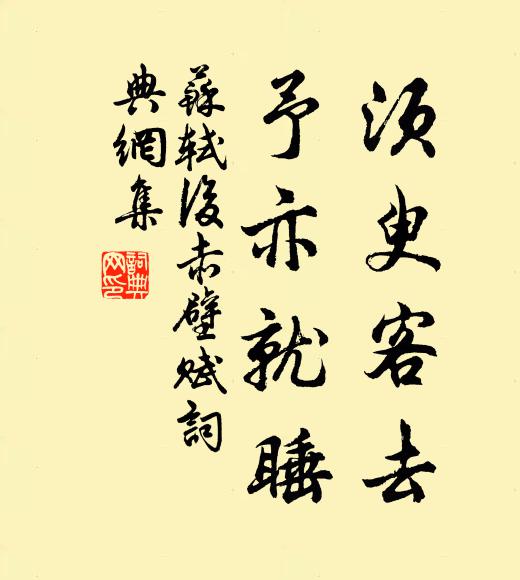 須臾客去
予亦就睡
蘇軾後赤壁賦詞
典網集
詞典網印